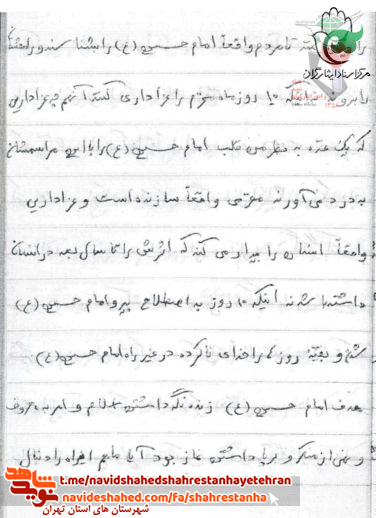 مرکز اسناد ایثارگران
تا مردم واقعاً امام حسین (ع) را بشناسند و راهش
را بروند نه اینکه ۱۰ روز ماه محرم را عزاداری کنند آنهم چه عزاداریی
که یک عده به نظر من قلب امام حسین (ع) را با این مراسمشان
به درد می‌آورند محرمی واقعاً سازنده است و عزاداریی
واقعاً انسان را بیدار می‌کند که اثرش را تا سال بعد در انسان
داشته باشد نه اینکه ۱۰ روز به اصطلاح پیرو امام حسین (ع)
شدیم و بقیه روزها را خدای ناکرده در غیر راه امام حسین (ع)
هدف امام حسین (ع) زنده نگه داشتن اسلام و امر به معروف
و نهی از منکر و برپا داشتن نماز بود آیا ما هم این راه را دنبال
نوید شاهد
t.me/navidshahedshahrestanhayetehran
navideshahed.com/fa/shahrestanha
شهرستان های استان تهران